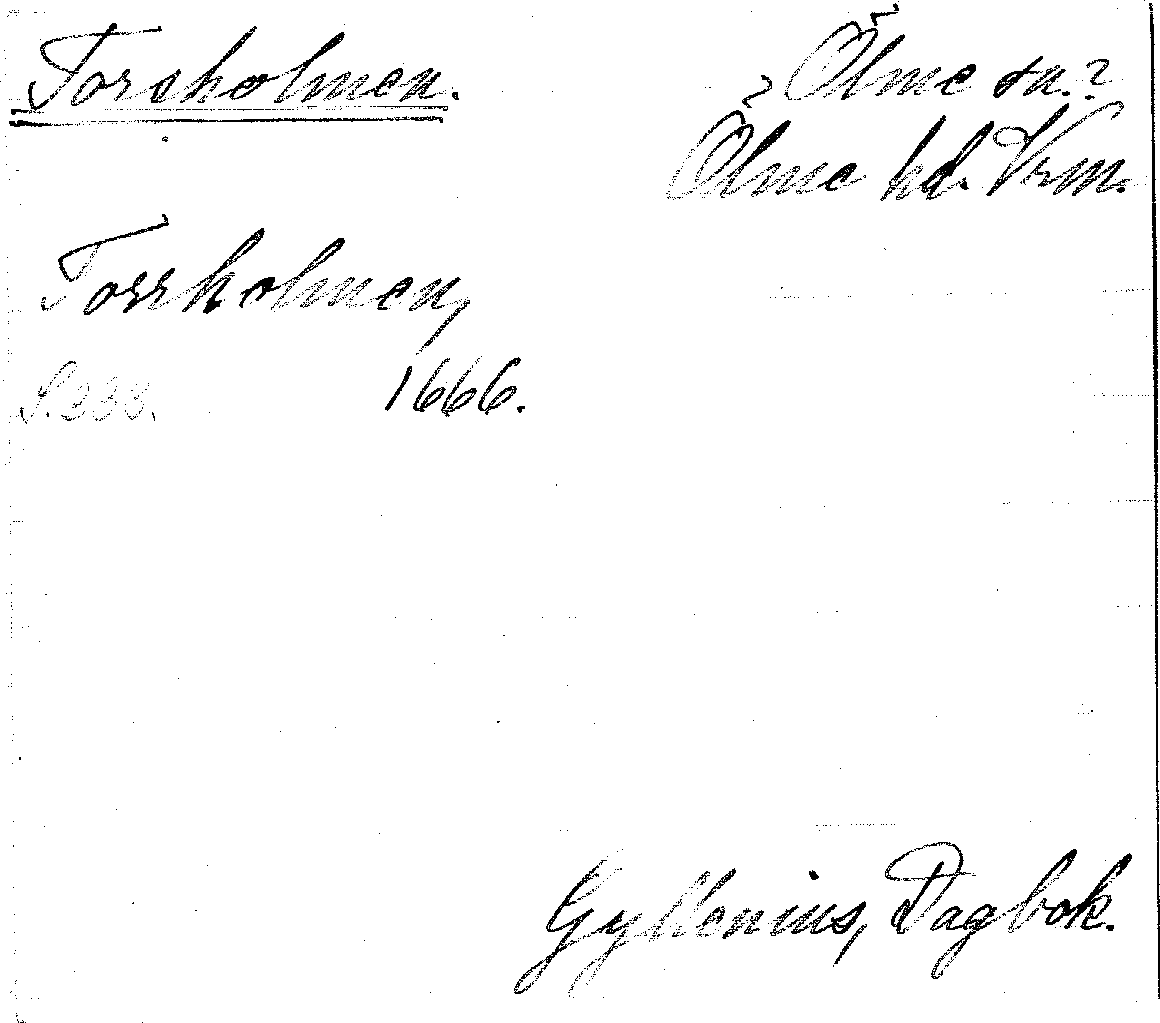 Torsholmen.
Ölme sn.?
Ölme hd. Vrm.
Torsholmen,
S. 233. 1666.
Gyllenius, Dagbok.